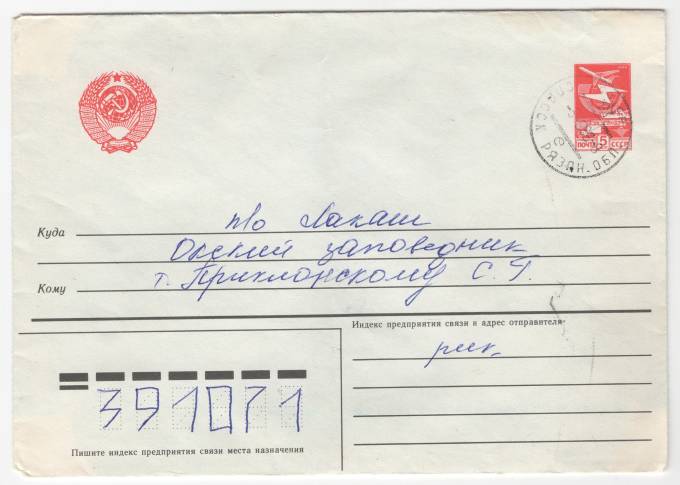 ПОЧТА СССР
5
РЯЗАН. ОБЛ.
Куда
п/о Лакаш
Окский заповедник
Кому
т. Приклонскому С. Г.
Индекс предприятия связи и адрес отправителя
рик
391071
Пишите индекс предприятия связи места назначения